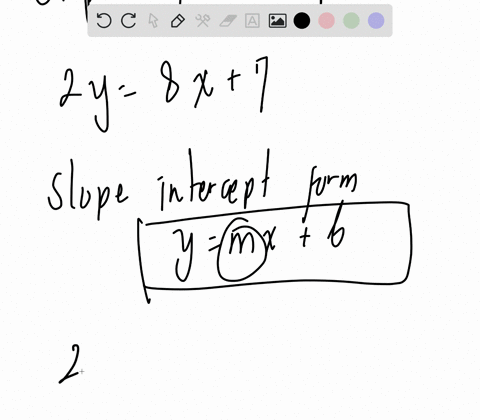 2y = 8x + 7
slope intercept form
y = mx + b
2